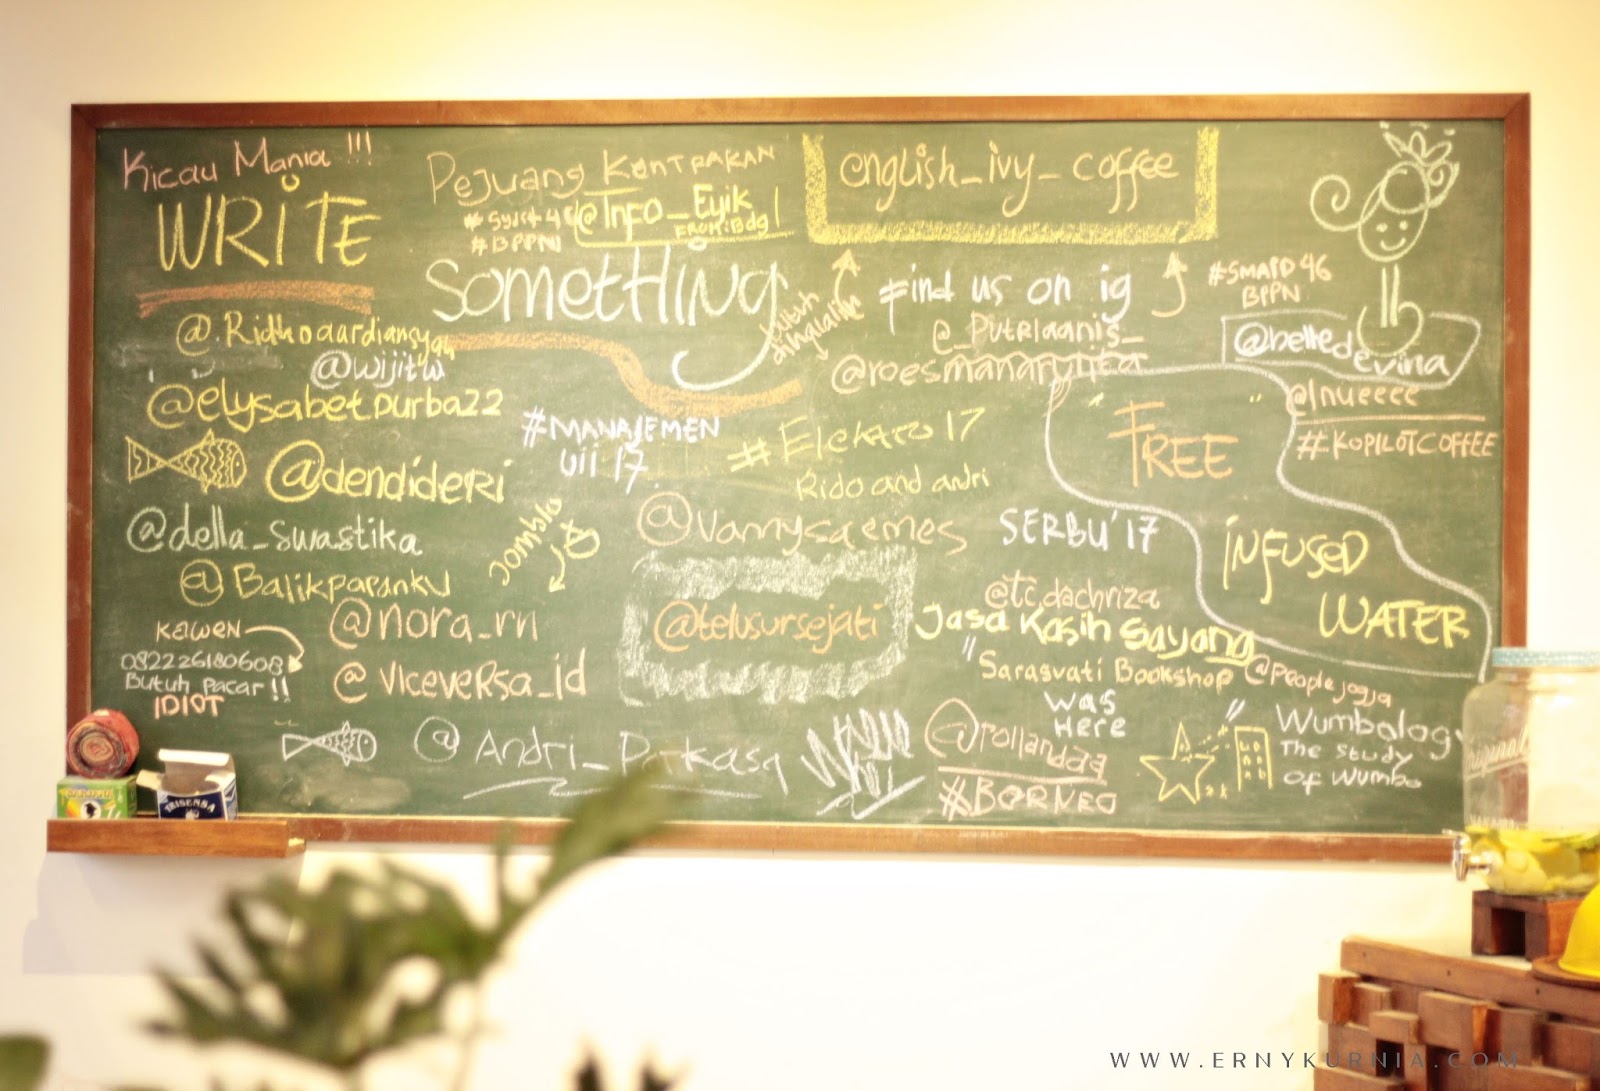 Kicau Mania !!!
WRiTE
Pejuang KONTRAKAN
@Info_Eyik
FROM:Bdg
#BPPN
SometHiNg
@english_ivy_coffee
Find us on ig
#SMAPD 46
BPPN
@.Ridhoaardiansyah
@wijitw
@elysabetpurba22
@_PUTRIAANIS_
@roesmanarynta
@belledevina
@Inueeee
#KOPILOTCOFFEE
#MANAJEMEN
Uii 17
#Elektro 17
Rido and andri
"FREE"
iNFUSED
WATER
@dendideri
@della_swastika
Jomblo
@vannysaemes
SERBU'17
@Balikpapanku
@nora_rn
@telusursejati
@tc.dachriza
Jasa Kasih Sayang
KAWEN
082226180608
Butuh pacar!!
IDIOT
@viceversa_id
"Sarasvati Bookshop
was
Here"
@peoplejogja
@Andri_Prakasa
@rollandaa
#BORNEO
Wumbology
The study
of Wumbo
TRISENSA
WWW.ERNYKURNIA.COM